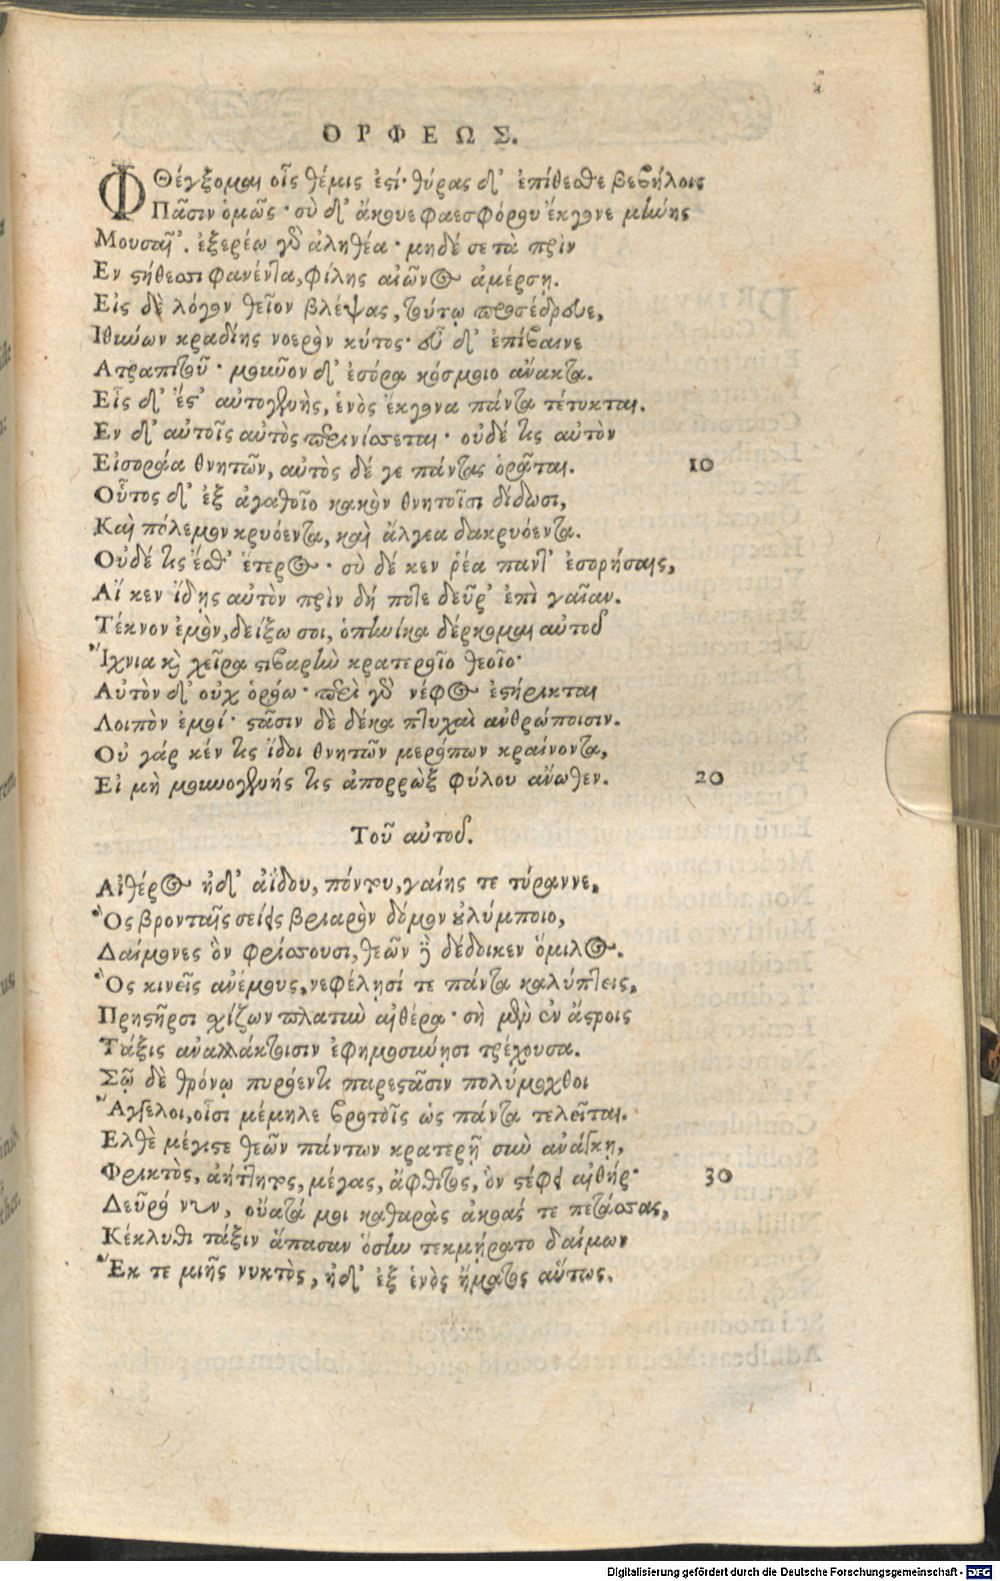 ΟΡΦΕΩΣ.
ΦΘέγξομαι οἷς θέμις ἐστί· θύρας δ' ἐπίθεσθε βεβήλοις
Πᾶσιν ὁμῶς· σὺ δ' ἄκουε φαεσφόρου ἔκγονε μήνης
Μουσαῖ'. ἐξερέω γὸ ἀληθέα· μηδέ σε τὰ πρὶν
Εν στήθεσσι φανέντα, φίλης αἰῶνος ἀμέρσῃ.
Εἰς δὲ λόγον θεῖον βλέψας, τούτῳ προσέδρευε,
Ιθύνων κραδίης νοερὸν κύτος· εὖ δ' ἐπίβαινε
Ατραπιτοῦ· μοῦνον δ' ἐσόρα κόσμοιο ἄνακτα.
Εἷς δ' ἔστ' αὐτογενὴς, ἑνὸς ἔκγονα πάντα τέτυκται.
Εν δ' αὐτοῖς αὐτὸς περινίσσεται· οὐδέ τις αὐτὸν
Εἰσοράα θνητῶν, αὐτὸς δέ γε πάντας ὁρᾶται. 10
Οὗτος δ' ἐξ ἀγαθοῖο κακὸν θνητοῖσι δίδωσι,
Καὶ πόλεμον κρυόεντα, καὶ ἄλγεα δακρυόεντα.
Οὐδέ τις ἔσθ' ἕτερος· σὺ δέ κεν ῥέα παντ' ἐσορήσαις,
Αἴ κεν ἴδῃς αὐτὸν πρὶν δή ποτε δεῦρ' ἐπὶ γαῖαν.
Τέκνον ἐμὸν, δείξω σοι, ὁπηνίκα δέρκομαι αὐτοῦ
Ἴχνια καὶ χεῖρα στιβαρὴν κρατεροῖο θεοῖο·
Αὐτὸν δ' οὐχ ὁρόω· περὶ γὸ νέφος ἐστήρικται
Λοιπὸν ἐμοί· στᾶσιν δὲ δέκα πτυχαὶ ἀνθρώποισιν.
Οὐ γάρ κέν τις ἴδοι θνητῶν μερόπων κραίνοντα,
Εἰ μὴ μουνογενής τις ἀπορρὼξ φύλου ἄνωθεν. 20
Τοῦ αὐτοῦ.
Αἰθέρος ἠδ' ἀΐδου, πόντου, γαίης τε τύραννε,
Ὃς βρονταῖς σείεις βριαρὸν δόμον οὐλύμποιο,
Δαίμονες ὃν φρίσσουσι, θεῶν δὲ δέδοικεν ὅμιλος.
Ὃς κινεῖς ἀνέμους, νεφέλῃσί τε πάντα καλύπτεις,
Πρηστῆρσι σχίζων πλατὺν αἰθέρα· σὴ μὲν ἐν ἄστροις
Τάξις ἀναλλάκτοισιν ἐφημοσύνῃσι τρέχουσα.
Σῷ δὲ θρόνῳ πυρόεντι παρεστᾶσιν πολύμοχθοι
Ἄγγελοι, οἷσι μέμηλε βροτοῖς ὡς πάντα τελεῖται.
Ελθὲ μέγιστε θεῶν πάντων κρατερῇ σὺν ἀνάγκῃ,
Φρικτὸς, ἀήττητος, μέγας, ἄφθιτος, ὃν στέφει αἰθήρ· 30
Δεῦρό νυν, οὔατά μοι καθαρὰς ἀκοάς τε πετάσσας,
Κέκλυθι τάξιν ἅπασαν ὁσίην τεκμήρατο δαίμων
Ἔκ τε μιῆς νυκτὸς, ἠδ' ἐξ ἑνὸς ἤματος αὕτως.
Digitalisierung gefördert durch die Deutsche Forschungsgemeinschaft - DFG